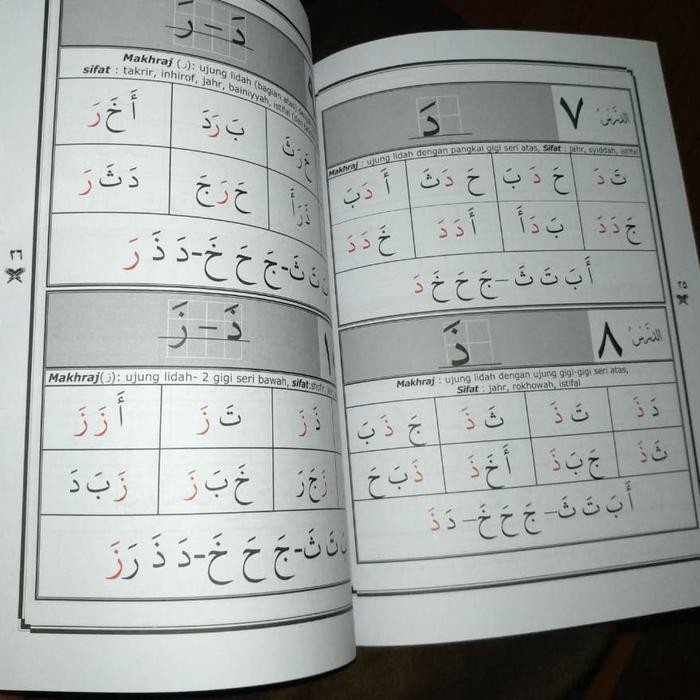 الدرس ٧
دَ
Makhraj : ujung lidah dengan pangkal gigi seri atas, Sifat : jahr, syiddah, istifal
تَ دَ حَ دَ بَ حَ دَ ثَ أَ دَ بَ
جَ دَ دَ بَ دَ أَ أَ دَ دَ خَ دَ دَ
أَ بَ تَ ثَ – جَ حَ خَ دَ
الدرس ٨
ذَ
Makhraj : ujung lidah dengan ujung gigi-gigi seri atas,
Sifat : jahr, rokhowah, istifal
دَ ذَ تَ ذَ ثَ ذَ جَ ذَ بَ
ثَ ذَ جَ بَ ذَ أَ خَ ذَ ذَ بَ حَ
أَ بَ تَ ثَ – جَ حَ خَ – دَ ذَ
٢٥
دَ – رَ
Makhraj (ر): ujung lidah (bagian atas)
sifat : takrir, inhirof, jahr, bainiyyah, istifal
خَ رَ ثَ بَ رَ دَ أَ خَ رَ
ذَ رَ أَ حَ رَ جَ دَ ثَ رَ
تَ ثَ – جَ حَ خَ – دَ ذَ رَ
ذَ – زَ
Makhraj(ز): ujung lidah- 2 gigi seri bawah, sifat:
ذَ زَ تَ زَ أَ زَ زَ
زَ جَ رَ خَ بَ زَ زَ بَ دَ
بَ تَ ثَ – جَ حَ خَ – دَ ذَ رَ زَ
٢٦